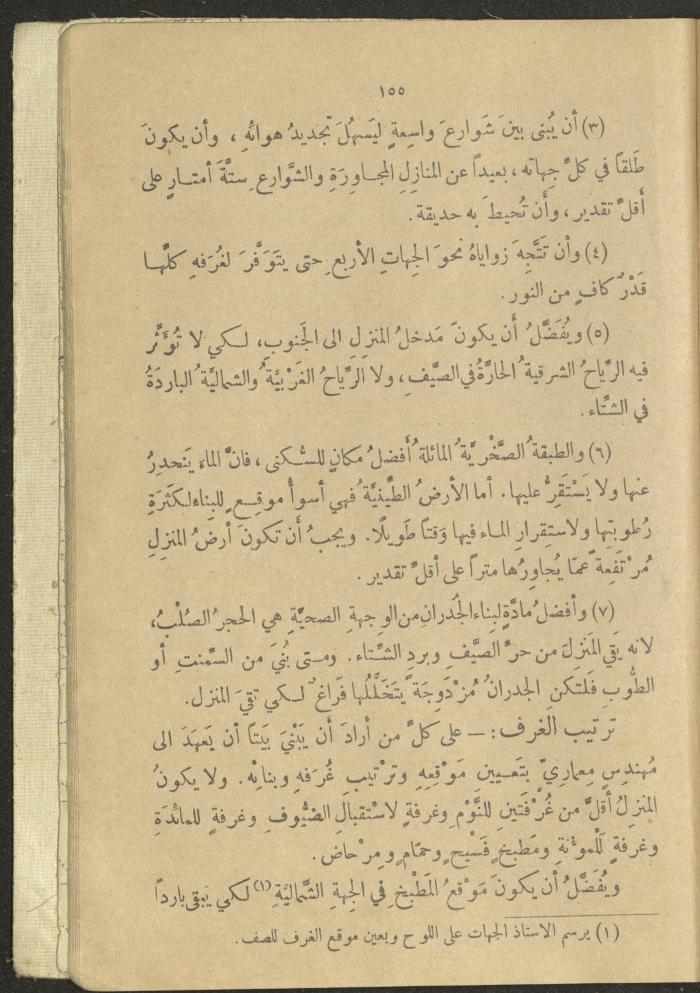 ١٥٥
(٣) أن يُبنى بينَ شَوارعَ واسِعةٍ ليَسهُلَ تجديدُ هوائهِ ، وأن يكونَ
طَلقاً في كلِّ جِهاته ، بعيداً عن المنازِلِ المجـاوِرَةِ والشَّوارع ِ ستَّةَ أمتـارٍ على
أقلِّ تقدير ، وأن تُحيطَ به حديقة .
(٤) وأن تَتَّجِهَ زواياهُ نحوَ الجِهاتِ الأربع ِ حتى يتَوَفَّرَ لغُرَفهِ كلِّهـا
قَدْرٌ كافٍ من النور .
(٥) ويُفَضَّلُ أن يكونَ مَدخلُ المنزِلِ الى الجَنوبِ، لـكي لا تُؤَثِّر
فيه الرِّياحُ الشرقيةُ الحارَّةُ في الصَّيفِ ، ولا الرِّياحُ الغَرْبيَّةُ والشماليَّةُ الباردَةُ
في الشتِّاء .
(٦) والطبقةُ الصَّخْريَّةُ المائلةُ أفضلُ مكانٍ للسُّـكنى ، فانَّ الماءَ يَنحدِرُ
عنها ولا يَسْتَقِرُّ عليها . أما الأرضُ الطِّينيَّةُ فهي أسوأُ موقعٍ للبِناءِ لكَثرَةِ
رُطوبتِها ولاستِقرارِ المـاء فيها وَقتاً طَويلًا. ويجبُ أن تكونَ أرضُ المنزِلِ
مُرْتَفِعةً عمّا يُجاوِرُها متراً على أقلِّ تقدير .
(٧) وأفضلُ مادَّةٍ لبِناء الجُدرانِ من الوِجهةِ الصحيَّةِ هي الحجرُ الصُلْبُ،
لانه يَقي المَنزلَ من حرِّ الصَّيفِ وبردِ الشتـاء . ومـتى بُنيَ من السِّمنتِ أو
الطُّوبِ فَلتكنِ الجدرانُ مُزْدَوِجَةً يتَخَلَّلُها فَراغٌ لـكي تقيَ المنزل.
ترتيب الغرف : — على كلِّ من أرادَ أن يَبْنيَ بَيتاً أن يَعهَدَ الى
مُهندِسٍ مِعماريٍّ بتَعـيينِ مَوْقِعِهِ وترْتيبِ غُرَفهِ وبنائه . ولا يكونُ
المنزِلُ أقلَّ من غُرْفتَينِ للنَّوْم ِ وغرفةٍ لاسْتقبالِ الضيُّوفِ وغرفةٍ للمائدَةِ
وغرفةٍ لَلْموُنةِ ومَطبخٍ فَسْيحٍ وحمّامٍ ومِرْحاض .
ويُفَضَّلُ أن يكونَ مَوْقعُ المَطْبخِ في الجِهةِ الشَّماليَّةِ (١) لـكي يَبقى بارداً
(١) يرسم الاستاذ الجهات على اللوح ويعين موقع الغرف للصف .